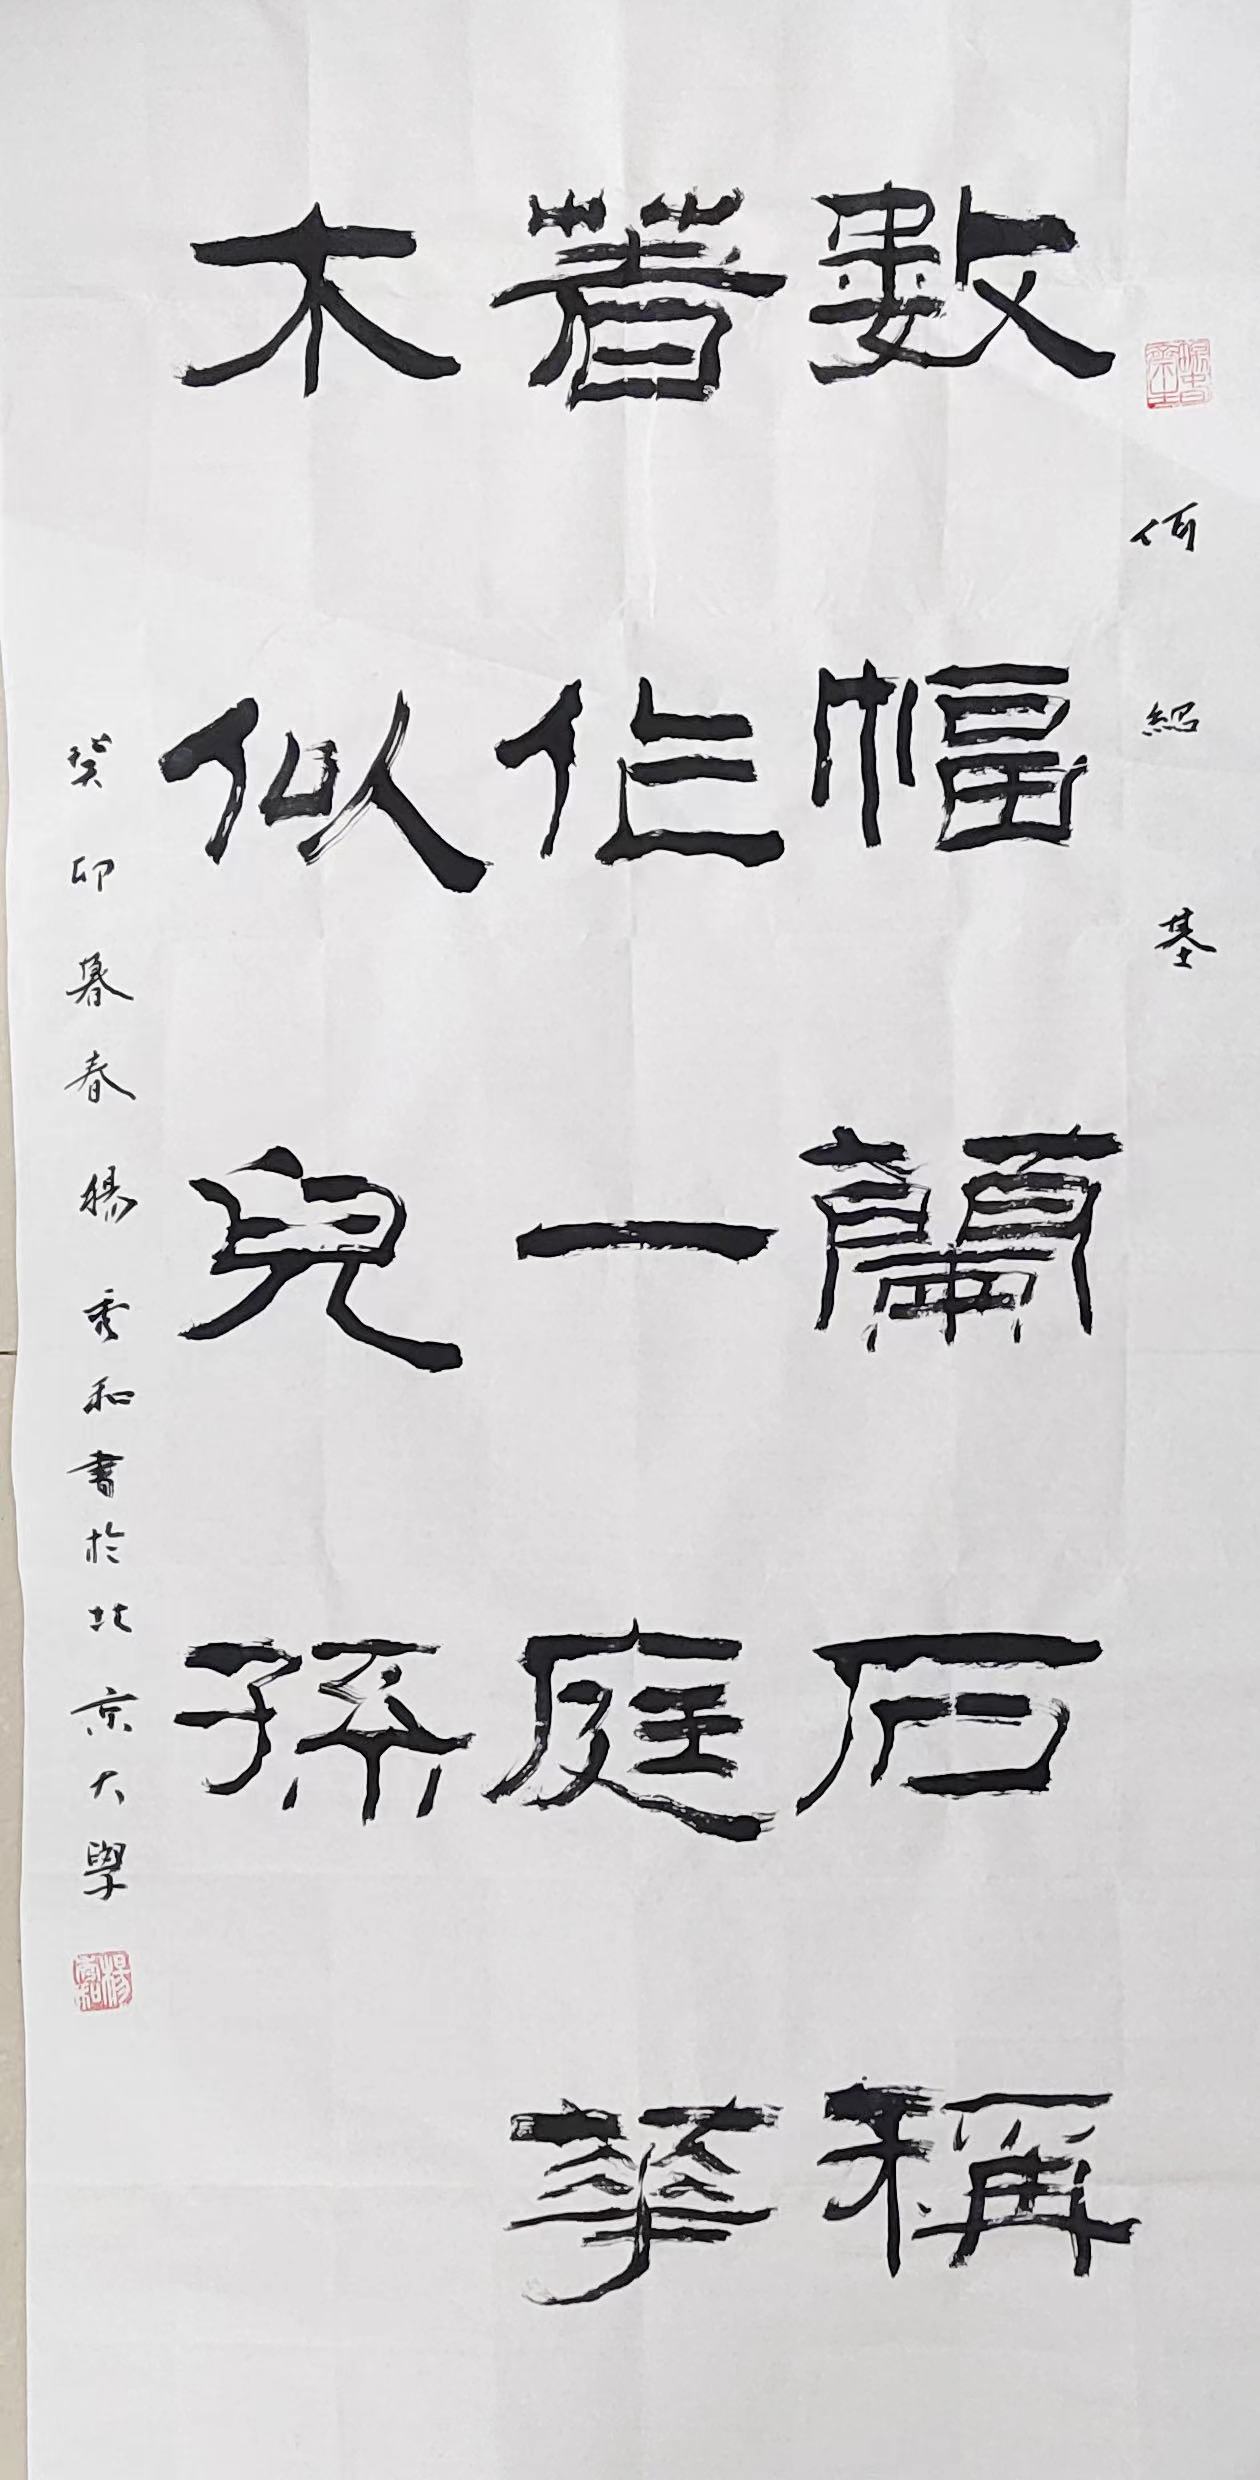 何紹基
數幅蘭石稱
着作一庭華
木似兒孫
癸卯暮春楊秀和書於北京大學
楊秀和